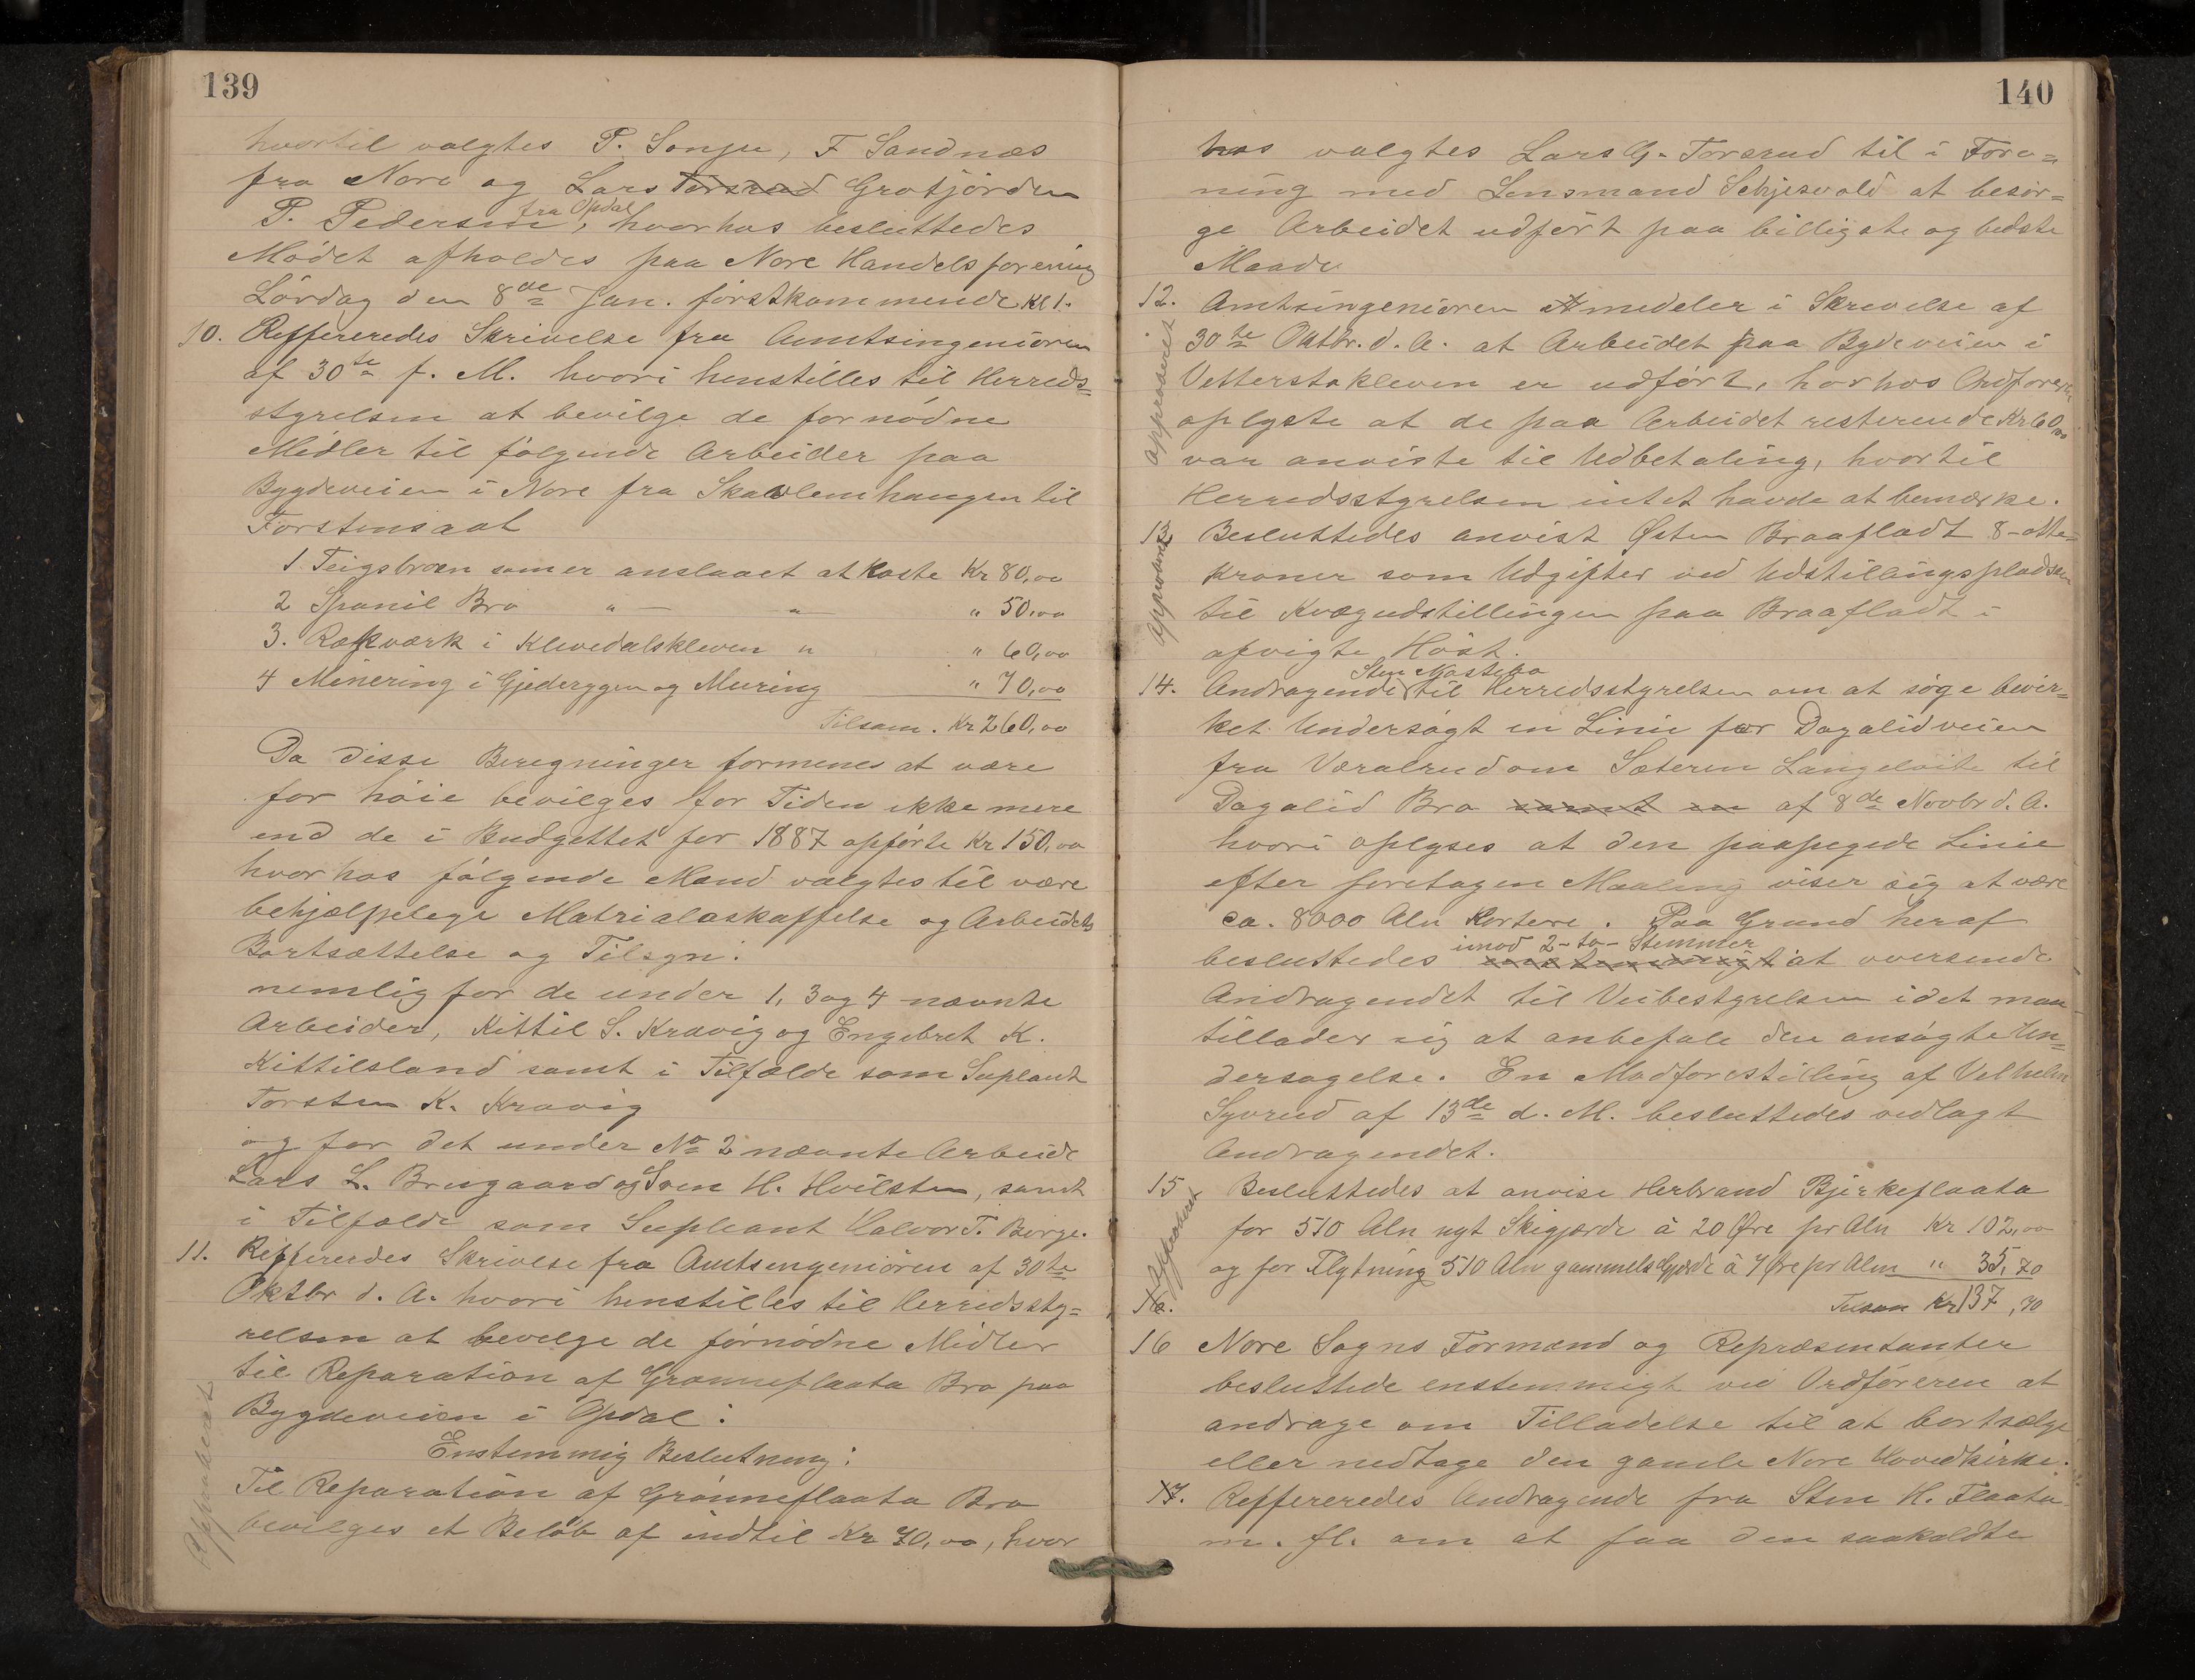 139
hvortil valgtes P. Sonju, F Sandnæs
fra Nore og Lars Torsrud Grotjorden
fra Opdal
P. Pedersen, hvorhos besluttedes
Mödet afholdes paa Nore Handelsforening
Lördag den 8de Jan. förstkommende Kl 1.
10. Reffereredes Skrivelse fra Amtsingeniören
af 30te f. M. hvori henstilles til Herreds=
styrelsen at bevilge de fornödne
Midler til fölgende Arbeider paa
Bygdeveien i Nore fra Skavlemhaugen til
Torstensaat
1 Teigsbroen som er anslaaet at koste Kr 80,00
2 Spanil Bro " — " — " 50,00
3. Rækværk i Klevedalskleven " " 60,00
4 Minering i Gjederyggen og Muring " 70,00
Tilsam. Kr 260,00
Da disse Beregninger formenes at være
for höie bevilges for Tiden ikke mere
end de i Budgettet for 1887 opförte Kr 150,00
hvorhos fölgende Mænd valgtes til være
behjælpelege Matrialaskaffelse og Arbeidets
Bortsættelse og Tilsyn:
nemlig for de under 1, 3 og 4 nævnte
Arbeider, Kittil S. Kravig og Engebret K.
Kittilsland samt i Tilfælde som Supleant
Torsten K. Kravig
og for det under No 2 nævnte Arbeide
Lars L. Brugaard og Sven H. Hvilsten, samt
i Tilfælde som Supleant Halvor T. Börge.
11. Reffereredes Skrivelse fra Amtsingeniören af 30te
Oktbr d. A. hvori henstilles til Herredssty=
relsen at bevelge de förnödne Midler
til Reparation af Grönneflaata Bro paa
Bygdeveien i Opdal:
Enstemmig Beslutning:
Til Reparation af Grönneflaata Bro
bevilges et Belöb af indtil Kr 70,00, hvor
Approberet
140
hos valgtes Lars G. Torsrud til i Fore=
ning med Lensmand Schjesvold at besör=
ge Arbeidet udfört paa billigste og bedste
Maade
12. Amtsingeniören medeler i Skrivelse af
30te Oktbr. d. A. at Arbeidet paa Bydeveien i
Vetterstakleven er udfört, hvorhos Ordföreren
oplyste at de paa Arbeidet resterende Kr 60,00
var anviste til Udbetaling, hvortil
Herredsstyrelsen intet havde at bemærke.
Approberet
13 Besluttedes anvist Østen Braafladt 8-otte=
Kroner som Udgifter ved Udstillingspladsen
til Kvægudstillingen paa Braafladt i
afvigte Höst.
Approberet
Sten Mastebo
14. Andragende til Herredsstyrelsen om at söge bevir=
ket Undersögt en Linie for Dagalidveien
fra Væralrud om Sæteren Langeloite til
Dagalid Bro samt en af 8de Novbr d. A.
hvori oplyses at den paapegede Linie
efter foretagen Maaling viser sig at være
ca. 8000 Aln Kortere. Paa Grund heraf
imod 2-to- Stemmer
besluttedes enstemmigt at oversende
Andragendet til Veibestyrelsen idet man
tillader sig at anbefale den ansögte Un=
dersøgelse. En Modforestilling af Velhelm
Syvrud af 13de d. M. besluttedes vedlagt
Andragendet.
15 Besluttedes at anvise Herbrand Bjerkeflaata
for 510 Aln nyt Skigjærde à 20 Øre pr Aln Kr 102,00
og for Flytning 510 Aln gammelt Gjærde à 7 Øre pr Aln " 35,70
Approberet
16. Tilsam Kr 137,70
16 Nore Sogns Formænd og Repræsentanter
besluttede enstemmigt ved Ordföreren at
andrage om Tilladelse til at bortsælge
eller nedtage den gamle Nore Hovedkirke.
17. Reffereredes Andragende fra Sten H. Flaata
m. fl. om at faa den saakaldte